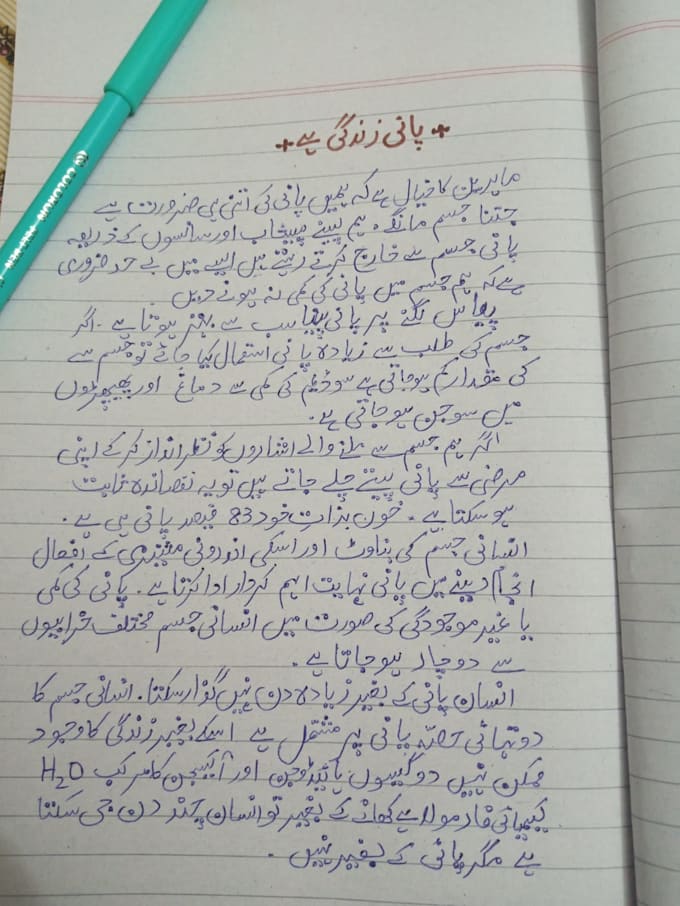 پانی زندگی ہے
ماہرین کا خیال ہے کہ ہمیں پانی کی اتنی ہی ضرورت ہے
جتنا جسم مانگے۔ ہم پسینے پیشاب اور سانسوں کے ذریعہ
پانی جسم سے خارج کرتے رہتے ہیں ایسے میں بے حد ضروری
ہے کہ ہم جسم میں پانی کی کمی نہ ہونے دیں۔
پیاس لگنے پر پانی پینا سب سے بہتر ہوتا ہے۔ اگر
جسم کی طلب سے زیادہ پانی استعمال کیا جائے تو جسم سے
کی مقدار کم ہوجاتی ہے سوڈیم کی کمی سے دماغ اور پھیپھڑوں
میں سوجن ہوجاتی ہے۔
اگر ہم جسم سے ملنے والے اشاروں کو نظر انداز کرکے اپنی
مرضی سے پانی پیتے چلے جاتے ہیں تو یہ نقصاندہ ثابت
ہوسکتا ہے۔ خون بذات خود 83 فیصد پانی ہی ہے۔
انسانی جسم کی بناوٹ اور اسکی اندرونی مشینری کے افعال
انجام دینے میں پانی نہایت اہم کردار ادا کرتا ہے۔ پانی کی کمی
یا غیر موجودگی کی صورت میں انسانی جسم مختلف خرابیوں
سے دوچار ہوجاتا ہے۔
انسان پانی کے بغیر زیادہ دن نہیں گزار سکتا۔ انسانی جسم کا
دو تہائی حصہ پانی پر مشتمل ہے اسکے بغیر زندگی کا وجود
ممکن نہیں دو گیسوں ہائیڈروجن اور آکسیجن کا مرکب H2O
کیمیائی فارمولا ہے کھانے کے بغیر تو انسان چند دن جی سکتا
ہے مگر پانی کے بغیر نہیں۔